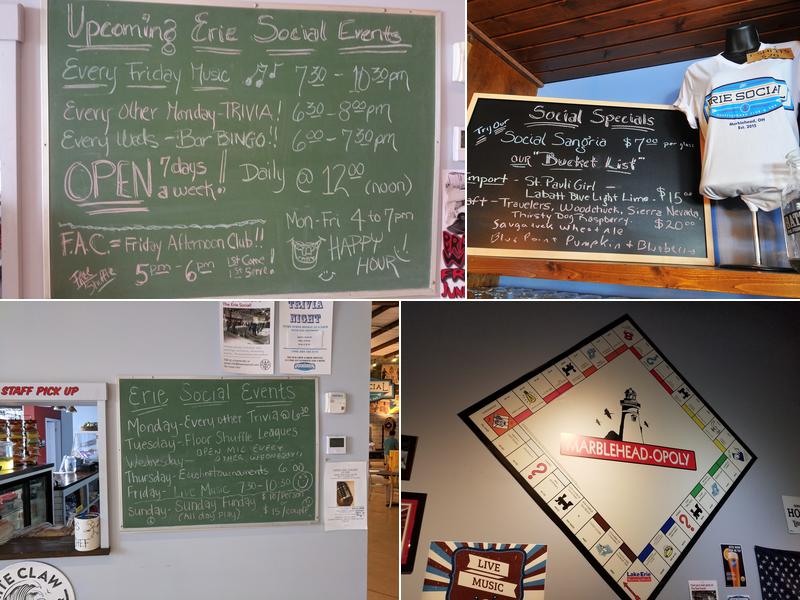 Upcoming Erie Social Events
Every Friday Music 7:30 - 10:30pm
Every Other Monday - TRIVIA! 6:30 - 8:00pm
Every Weds - Bar BINGO!! 6:00 - 7:30pm
OPEN 7 days a week!! Daily @ 12:00 (noon)
Mon-Fri 4 to 7pm
HAPPY HOUR!
F.A.C. = Friday Afternoon Club!!
Free Shuffle
5pm - 6pm 1st Come! 1st Serve!
Social Specials
Try Our
Social Sangria $7.00 per glass
OUR "Bucket List"
Import - St. Pauli Girl -
Labatt Blue Light Lime - $15.00
- Travelers, Woodchuck, Sierra Nevada,
Thirsty Dog Raspberry. $20.00
Saugatuck Wheat Ale
Blue Point Pumpkin + Blueberry
ERIE SOCIAL
Marblehead, OH
Est. 2015
STAFF PICK UP
The Erie Social!
TRIVIA
NIGHT
Erie Social Events
Monday - Every other Trivia @ 6:30
Tuesday - Floor Shuffle Leagues
Wednesday - OPEN MIC EVERY
OTHER WEDNESDAY,
Thursday - Euchre tournaments 6:00
Friday - Live Music 7:30 - 10:30
Sunday - Sunday Funday $10/person
(All day play) $15/couple
MARBLEHEAD-OPOLY
Lake Erie
LIVE
MUSIC